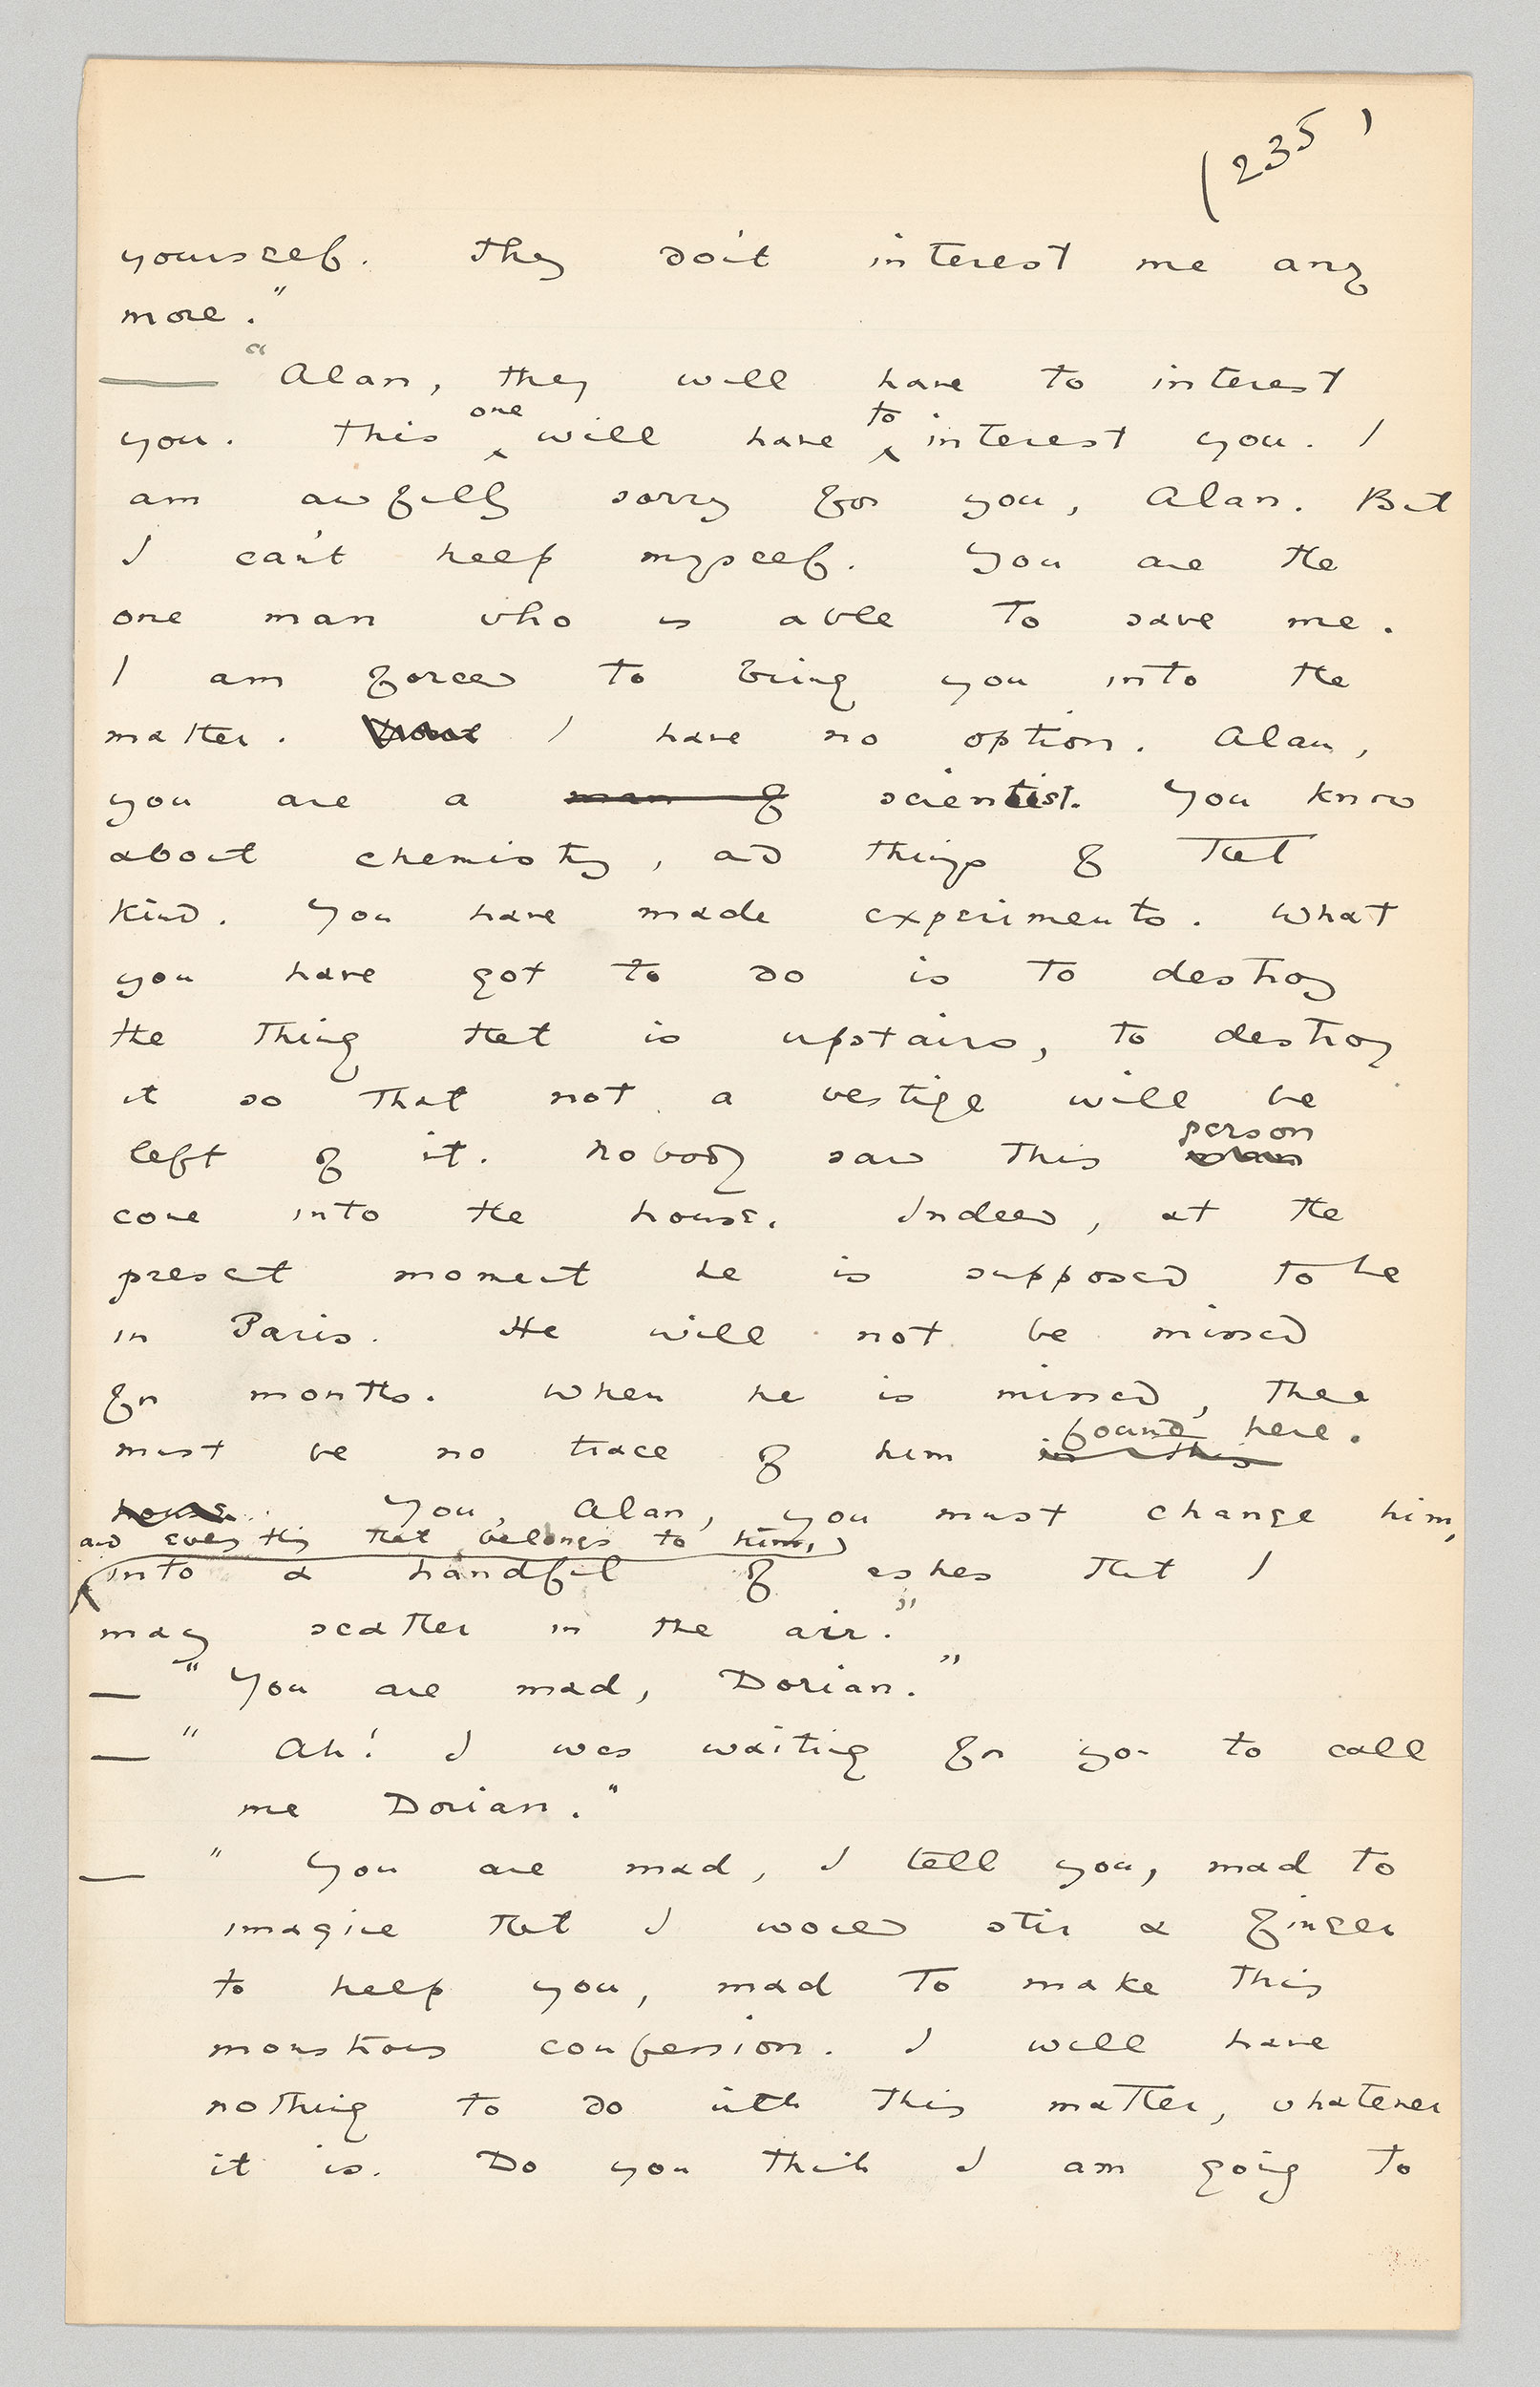 (235)
yourself. They don't interest me any
more."
— "Alan, they will have to interest
you. This one will have to interest you. I
am awfully sorry for you, Alan. But
I can't help myself. You are the
one man who is able to save me.
I am forced to bring you into the
matter. I have no option. Alan,
you are a man of scientist. You know
about chemistry, and things of that
kind. You have made experiments. What
you have got to do is to destroy
the thing that is upstairs, to destroy
it so that not a vestige will be
left of it. Nobody saw this person
come into the house. Indeed, at the
present moment he is supposed to be
in Paris. He will not be missed
for months. When he is missed, there
must be no trace of him in this found here.
house. You, Alan, you must change him,
and every thing that belongs to him,
into a handful of ashes that I
may scatter in the air."
— "You are mad, Dorian."
— "Ah! I was waiting for you to call
me Dorian."
— "You are mad, I tell you, mad to
imagine that I would stir a finger
to help you, mad to make this
monstrous confession. I will have
nothing to do with this matter, whatever
it is. Do you think I am going to